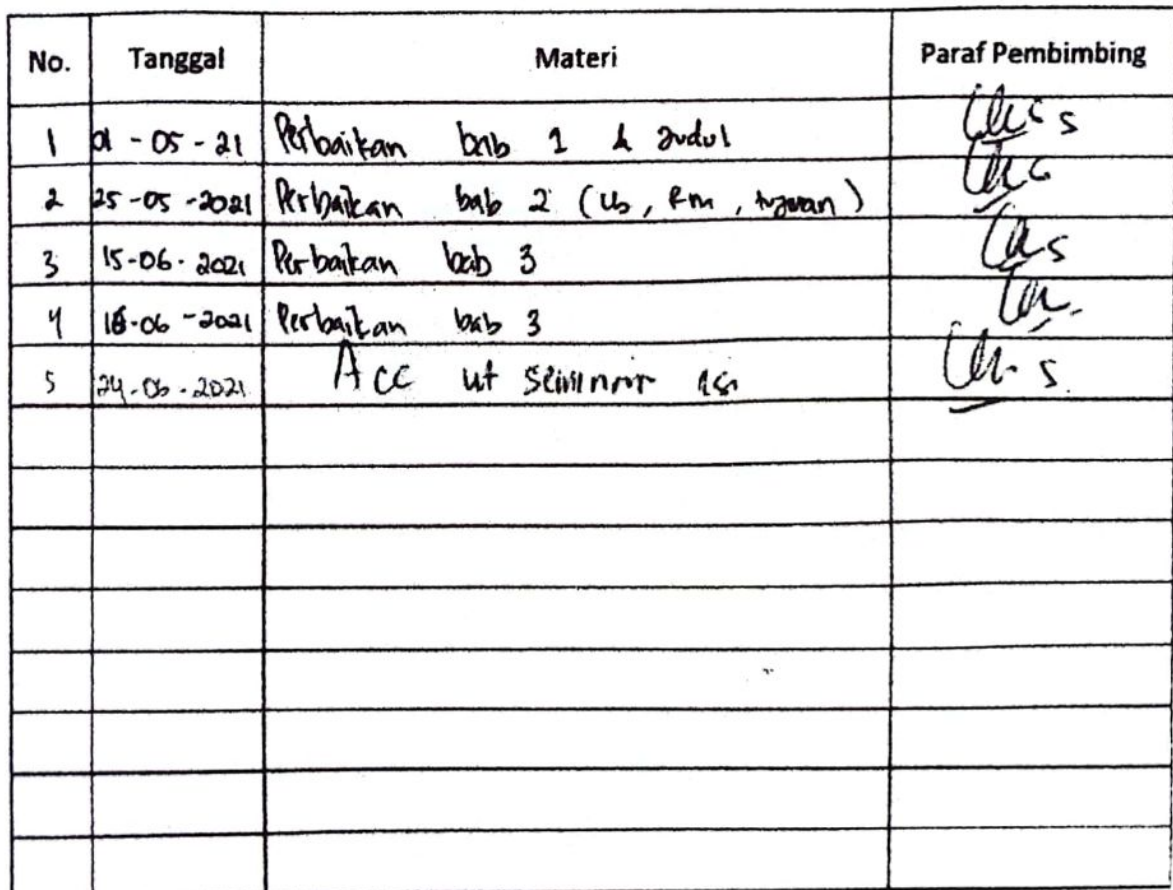 No. Tanggal Materi Paraf Pembimbing
1 01 - 05 - 21 Perbaikan bab 1 & Judul
2 25 - 05 - 2021 Perbaikan bab 2 (LB, RM, tujuan)
3 15 - 06 - 2021 Perbaikan bab 3
4 18 - 06 - 2021 Perbaikan bab 3
5 24 - 06 - 2021 Acc ut seminar